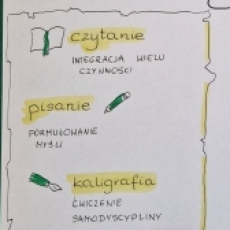 czytanie
INTEGRACJA WIELU
CZYNNOŚCI
pisanie
FORMUŁOWANIE
MYŚLI
kaligrafia
ĆWICZENIE
SAMODYSCYPLINY